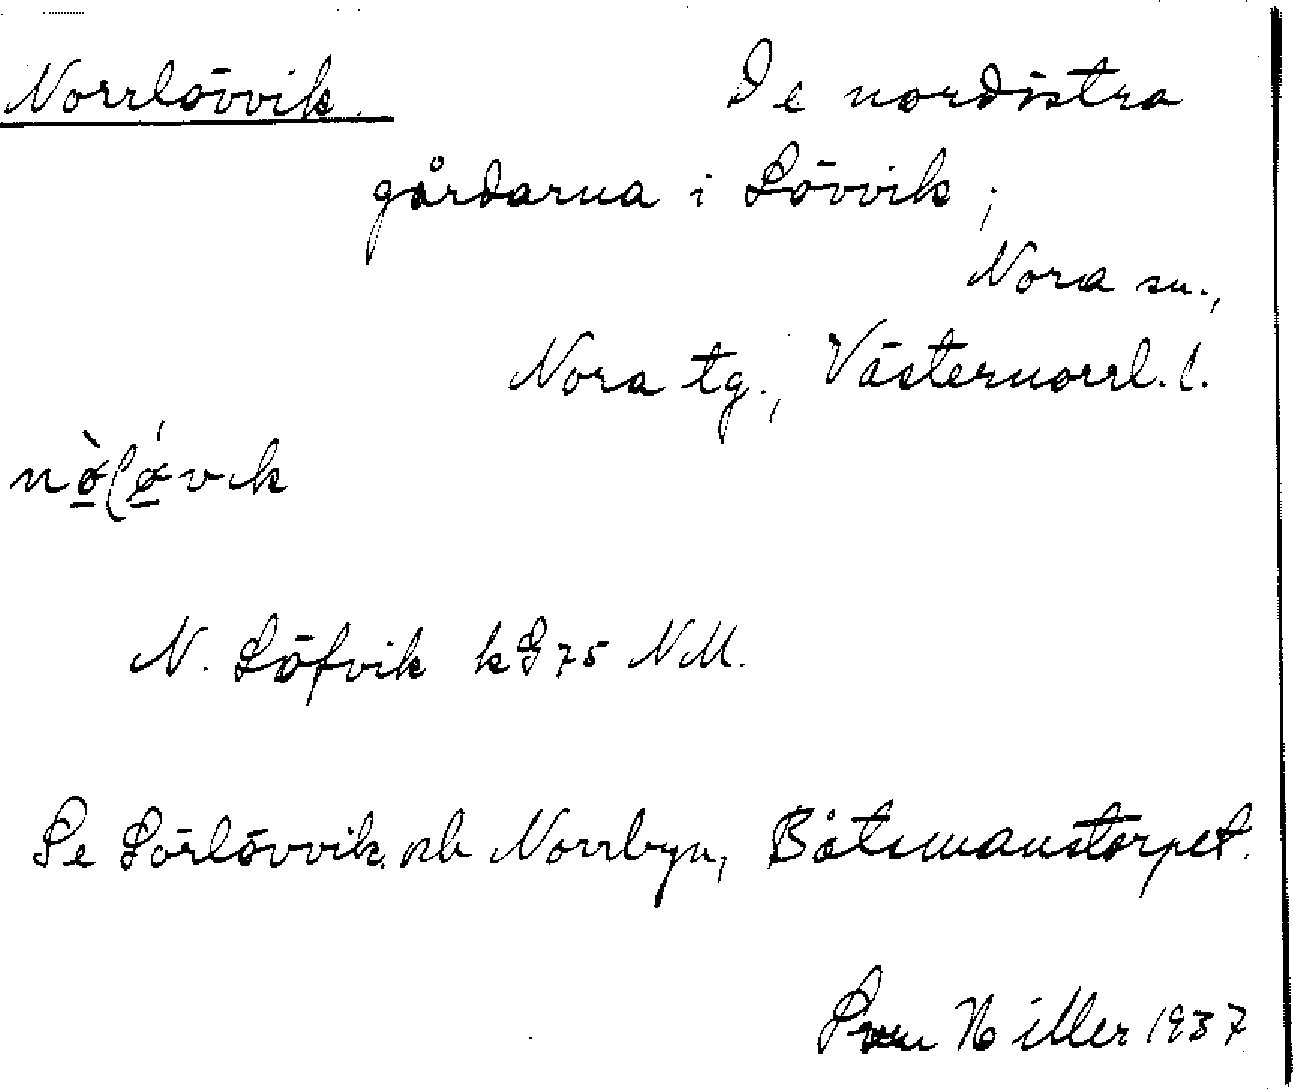 Norrlövvik. De nordöstra
gårdarna i Lövvik;
Nora sn.,
Nora tg., Västernorrl. l.
N. Löfvik kG 75 NM.
Se Sörlövvik, Norrbyn, Båtsmanstorpet.
Hiller 1937